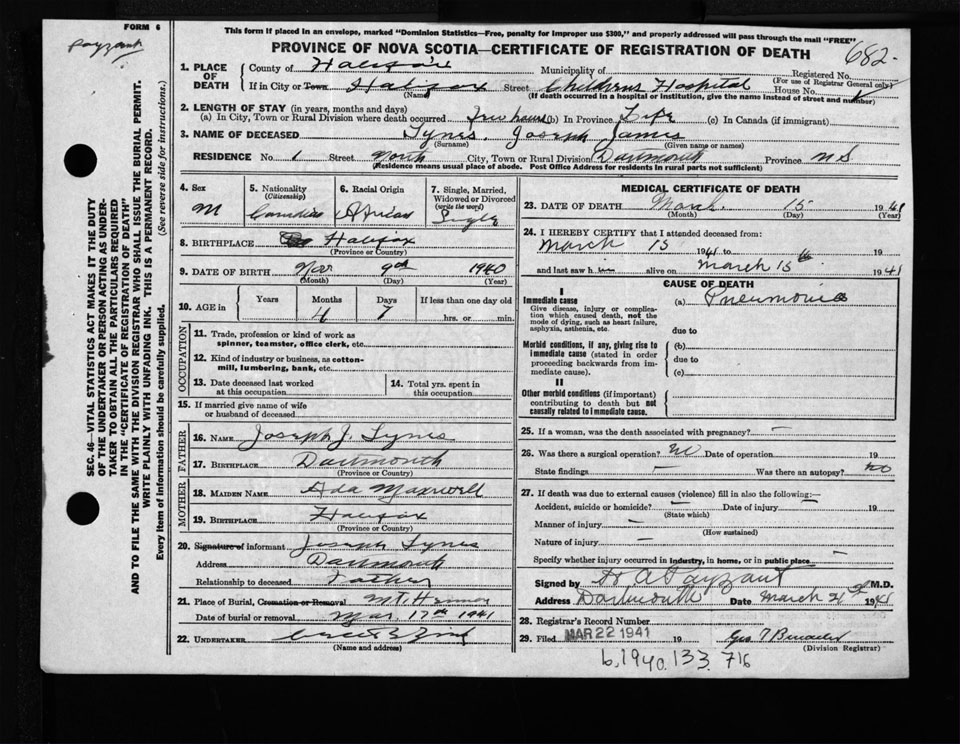 FORM 6
Payzant
This form if placed in an envelope, marked "Dominion Statistics—Free, penalty for improper use $300," and properly addressed will pass through the mail "FREE"
PROVINCE OF NOVA SCOTIA—CERTIFICATE OF REGISTRATION OF DEATH
682
1. PLACE OF DEATH
County of Halifax Municipality of Registered No.
(For use of Registrar General only)
If in City or Town Halifax Street Childrens Hospital House No.
(Name) (If death occurred in a hospital or institution, give the name instead of street and number)
2. LENGTH OF STAY (in years, months and days)
(a) In City, Town or Rural Division where death occurred hours (b) In Province Life (c) In Canada (if immigrant)
3. NAME OF DECEASED Tynes, Joseph James
(Surname) (Given name or names)
RESIDENCE No. 1 Street North City, Town or Rural Division Dartmouth Province N S
(Residence means usual place of abode. Post Office Address for residents in rural parts not sufficient)
4. Sex
M
5. Nationality
(Citizenship)
Canadian
6. Racial Origin
African
7. Single, Married, Widowed or Divorced
(write the word)
Single
8. BIRTHPLACE Halifax
(Province or Country)
9. DATE OF BIRTH Nov 9th 1940
(Month) (Day) (Year)
10. AGE in
Years Months Days If less than one day old
4 7 hrs. or min.
OCCUPATION
11. Trade, profession or kind of work as
spinner, teamster, office clerk, etc
12. Kind of industry or business, as cotton-
mill, lumbering, bank, etc
13. Date deceased last worked
at this occupation
14. Total yrs. spent in
this occupation
15. If married give name of wife
or husband of deceased
FATHER
16. NAME Joseph J. Tynes
17. BIRTHPLACE Dartmouth
(Province or Country)
MOTHER
18. MAIDEN NAME Ada Maxwell
19. BIRTHPLACE Halifax
(Province or Country)
20. Signature of informant Joseph Tynes
Address Dartmouth
Relationship to deceased Father
21. Place of Burial, Cremation or Removal Mt. Hermon
Date of burial or removal Mar 17th 1941
22. UNDERTAKER
(Name and address)
MEDICAL CERTIFICATE OF DEATH
23. DATE OF DEATH March 15 1941
(Month) (Day)
24. I HEREBY CERTIFY that I attended deceased from:
March 15 1941 to 19
and last saw h alive on March 15th 1941
CAUSE OF DEATH
I
Immediate cause
Give disease, injury or complica-
tion which caused death, not the
mode of dying, such as heart failure,
asphyxia, asthenia, etc.
(a) Pneumonia
due to
Morbid conditions, if any, giving rise to
immediate cause (stated in order
proceeding backwards from im-
mediate cause).
(b)
due to
(c)
II
Other morbid conditions (if important)
contributing to death but not
causally related to immediate cause.
25. If a woman, was the death associated with pregnancy? —
26. Was there a surgical operation? No Date of operation 19
State findings — Was there an autopsy? no
27. If death was due to external causes (violence) fill in also the following:—
Accident, suicide or homicide? — Date of injury 19
(State which)
Manner of injury —
(How sustained)
Nature of injury —
Specify whether injury occurred in industry, in home, or in public place —
Signed by H A Payzant M.D.
Address Dartmouth Date March 1941
28. Registrar's Record Number
29. Filed MAR 22 1941 19
(Division Registrar)
b. 1940. 133. 716
SEC. 46—VITAL STATISTICS ACT MAKES IT THE DUTY
OF THE UNDERTAKER OR PERSON ACTING AS UNDER-
TAKER TO OBTAIN ALL THE PARTICULARS REQUIRED
IN THE "CERTIFICATE OF REGISTRATION OF DEATH"
AND TO FILE THE SAME WITH THE DIVISION REGISTRAR WHO SHALL ISSUE THE BURIAL PERMIT.
WRITE PLAINLY WITH UNFADING INK. THIS IS A PERMANENT RECORD.
Every item of information should be carefully supplied. (See reverse side for instructions.)